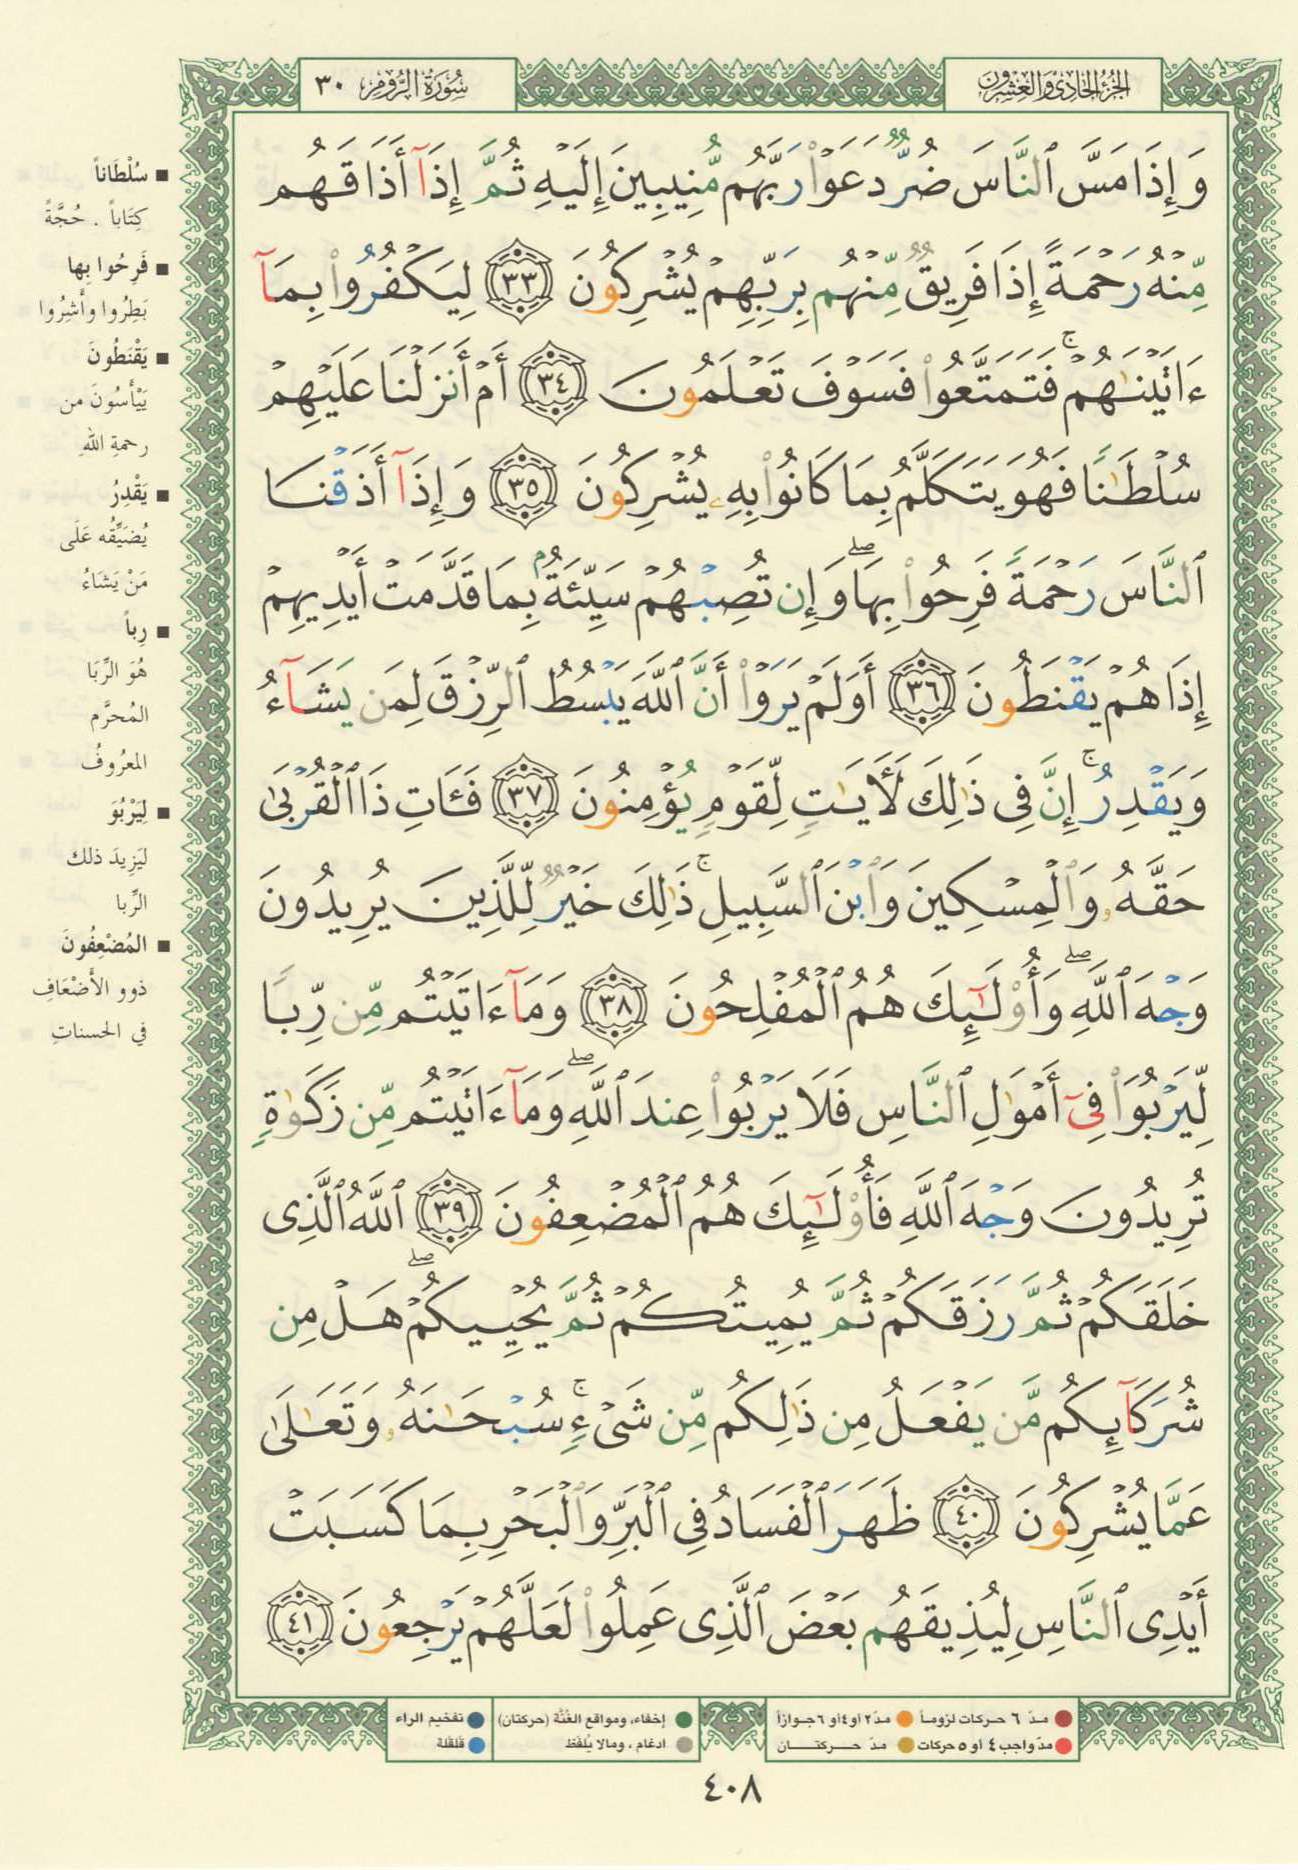 الجزء الحادي والعشرون
سورة الروم ٣٠
وَإِذَا مَسَّ ٱلنَّاسَ ضُرٌّ دَعَوْا۟ رَبَّهُم مُّنِيبِينَ إِلَيْهِ ثُمَّ إِذَآ أَذَاقَهُم
مِّنْهُ رَحْمَةً إِذَا فَرِيقٌ مِّنْهُم بِرَبِّهِمْ يُشْرِكُونَ ٣٣ لِيَكْفُرُوا۟ بِمَآ
ءَاتَيْنَـٰهُمْ ۚ فَتَمَتَّعُوا۟ فَسَوْفَ تَعْلَمُونَ ٣٤ أَمْ أَنزَلْنَا عَلَيْهِمْ
سُلْطَـٰنًا فَهُوَ يَتَكَلَّمُ بِمَا كَانُوا۟ بِهِۦ يُشْرِكُونَ ٣٥ وَإِذَآ أَذَقْنَا
ٱلنَّاسَ رَحْمَةً فَرِحُوا۟ بِهَا ۖ وَإِن تُصِبْهُمْ سَيِّئَةٌۢ بِمَا قَدَّمَتْ أَيْدِيهِمْ
إِذَا هُمْ يَقْنَطُونَ ٣٦ أَوَلَمْ يَرَوْا۟ أَنَّ ٱللَّهَ يَبْسُطُ ٱلرِّزْقَ لِمَن يَشَآءُ
وَيَقْدِرُ ۚ إِنَّ فِى ذَٰلِكَ لَـَٔايَـٰتٍ لِّقَوْمٍ يُؤْمِنُونَ ٣٧ فَـَٔاتِ ذَا ٱلْقُرْبَىٰ
حَقَّهُۥ وَٱلْمِسْكِينَ وَٱبْنَ ٱلسَّبِيلِ ۚ ذَٰلِكَ خَيْرٌ لِّلَّذِينَ يُرِيدُونَ
وَجْهَ ٱللَّهِ ۖ وَأُو۟لَـٰٓئِكَ هُمُ ٱلْمُفْلِحُونَ ٣٨ وَمَآ ءَاتَيْتُم مِّن رِّبًا
لِّيَرْبُوَا۟ فِىٓ أَمْوَٰلِ ٱلنَّاسِ فَلَا يَرْبُوا۟ عِندَ ٱللَّهِ ۖ وَمَآ ءَاتَيْتُم مِّن زَكَوٰةٍ
تُرِيدُونَ وَجْهَ ٱللَّهِ فَأُو۟لَـٰٓئِكَ هُمُ ٱلْمُضْعِفُونَ ٣٩ ٱللَّهُ ٱلَّذِى
خَلَقَكُمْ ثُمَّ رَزَقَكُمْ ثُمَّ يُمِيتُكُمْ ثُمَّ يُحْيِيكُمْ ۖ هَلْ مِن
شُرَكَآئِكُم مَّن يَفْعَلُ مِن ذَٰلِكُم مِّن شَىْءٍ ۚ سُبْحَـٰنَهُۥ وَتَعَـٰلَىٰ
عَمَّا يُشْرِكُونَ ٤٠ ظَهَرَ ٱلْفَسَادُ فِى ٱلْبَرِّ وَٱلْبَحْرِ بِمَا كَسَبَتْ
أَيْدِى ٱلنَّاسِ لِيُذِيقَهُم بَعْضَ ٱلَّذِى عَمِلُوا۟ لَعَلَّهُمْ يَرْجِعُونَ ٤١
■ سُلْطَاناً
كِتَاباً . حُجَّةً
■ فَرِحُوا بِها
بَطِرُوا وأَشِرُوا
■ يَقْنَطُونَ
يَيْأَسُونَ من
رحمةِ اللهِ
■ يَقْدِرُ
يُضَيِّقُه عَلَى
مَنْ يَشَاءُ
■ رِباً
هُوَ الرِّبَا
المُحرَّم
المعرُوفُ
■ لِيَرْبُوَ
ليَزِيدَ ذلك
الرِّبا
■ المُضْعِفُونَ
ذوو الأَضْعَافِ
في الحسناتِ
مدّ ٦ حركات لزوماً
مدّ ٢ أو ٤ أو ٦ جوازاً
إخفاء، ومواقع الغُنَّة (حركتان)
تفخيم الراء
مدّ واجب ٤ أو ٥ حركات
مدّ حركتان
ادغام ، ومالا يُلفَظ
قلقلة
٤٠٨